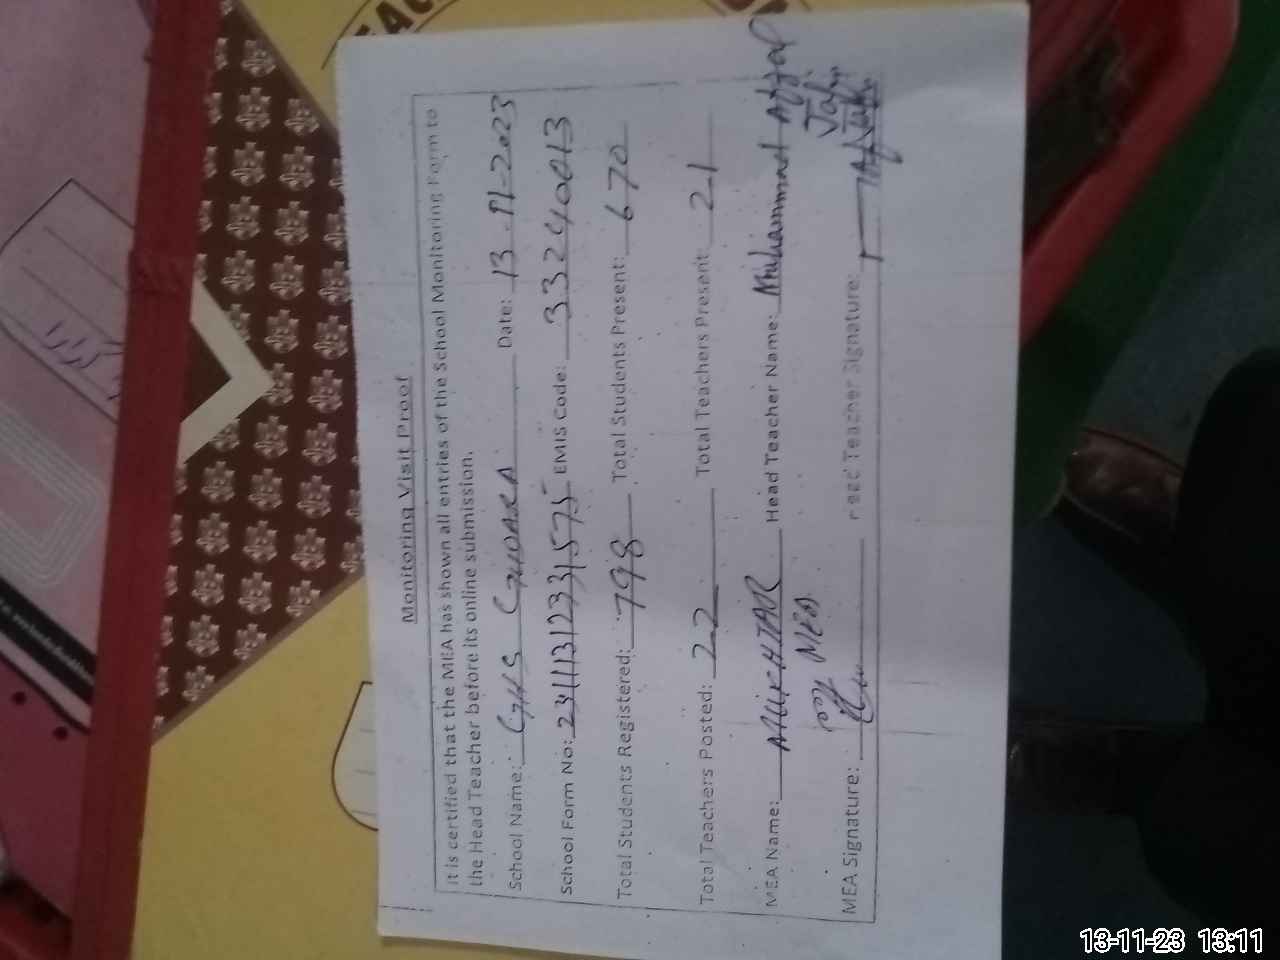 Monitoring Visit Proof
It is certified that the MEA has shown all entries of the School Monitoring Form to
the Head Teacher before its online submission.
School Name: GHS Date: 13-11-2023
School Form No: EMIS Code: 33240013
Total Students Registered: 798 Total Students Present: 670
Total Teachers Posted: 22 Total Teachers Present: 21
MEA Name: MUKHTAR Head Teacher Name: Muhammad Afzal
MEA
MEA Signature: Head Teacher Signature:
13-11-23 13:11